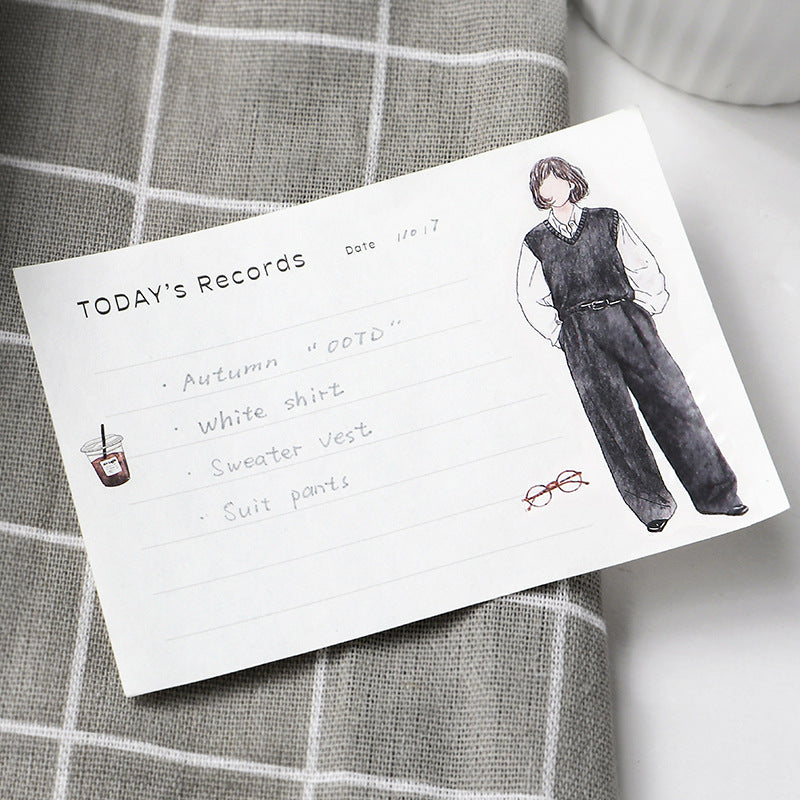 TODAY's Records Date 11017
· Autumn "OOTD"
· white shirt
· Sweater vest
· Suit pants